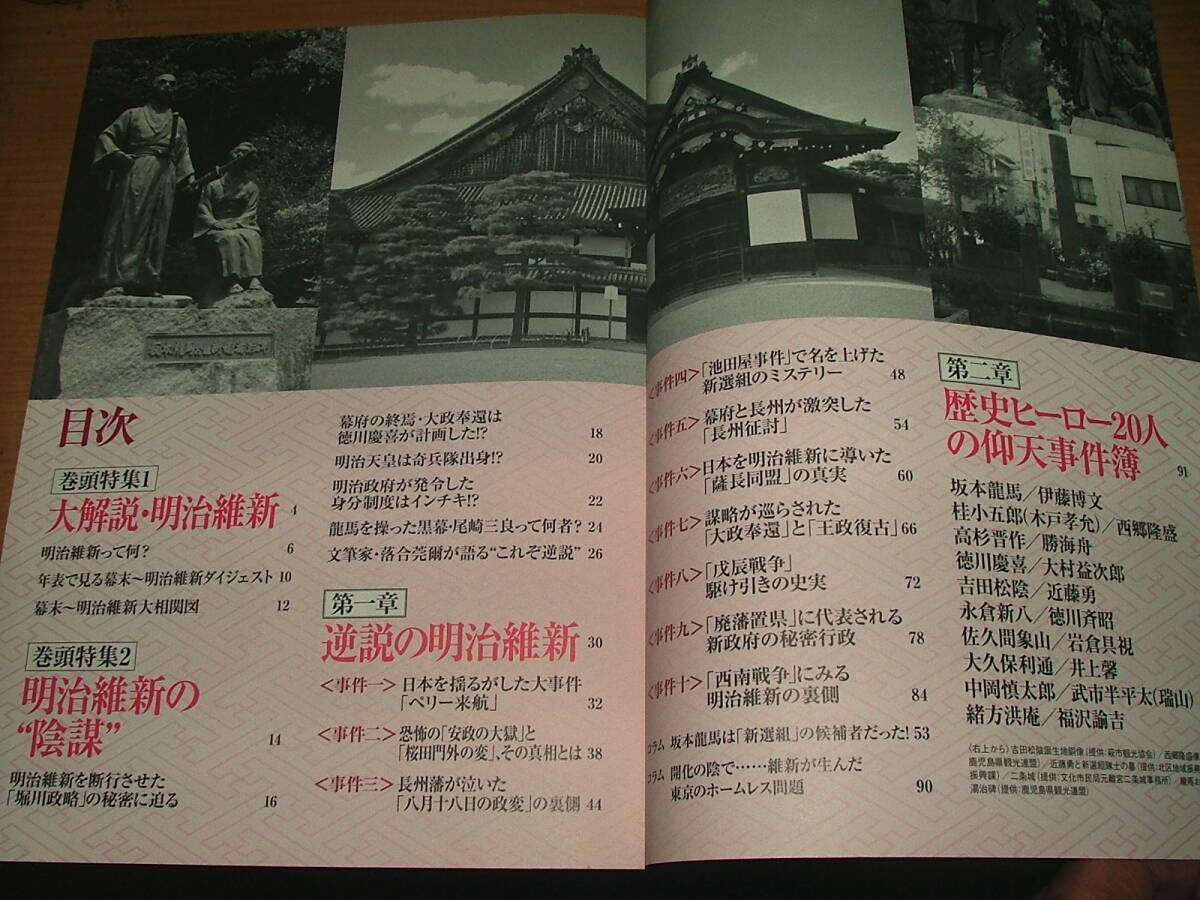 目次
巻頭特集1
大解説・明治維新 4
明治維新って何? 6
年表で見る幕末〜明治維新ダイジェスト 10
幕末〜明治維新大相関図 12
巻頭特集2
明治維新の
“陰謀” 14
明治維新を断行させた
「堀川政略」の秘密に迫る 16
幕府の終焉・大政奉還は
徳川慶喜が計画した!? 18
明治天皇は奇兵隊出身!? 20
明治政府が発令した
身分制度はインチキ!? 22
龍馬を操った黒幕・尾崎三良って何者? 24
文筆家・落合莞爾が語る“これぞ逆説” 26
第一章
逆説の明治維新 30
<事件一>日本を揺るがした大事件
「ペリー来航」 32
<事件二>恐怖の「安政の大獄」と
「桜田門外の変」、その真相とは 38
<事件三>長州藩が泣いた
「八月十八日の政変」の裏側 44
<事件四>「池田屋事件」で名を上げた
新選組のミステリー 48
<事件五>幕府と長州が激突した
「長州征討」 54
<事件六>日本を明治維新に導いた
「薩長同盟」の真実 60
<事件七>謀略が巡らされた
「大政奉還」と「王政復古」 66
<事件八>「戊辰戦争」
駆け引きの史実 72
<事件九>「廃藩置県」に代表される
新政府の秘密行政 78
<事件十>「西南戦争」にみる
明治維新の裏側 84
コラム 坂本龍馬は「新選組」の候補者だった! 53
コラム 開化の陰で……維新が生んだ
東京のホームレス問題 90
第二章
歴史ヒーロー20人
の仰天事件簿 91
坂本龍馬/伊藤博文
桂小五郎(木戸孝允)/西郷隆盛
高杉晋作/勝海舟
徳川慶喜/大村益次郎
吉田松陰/近藤勇
永倉新八/徳川斉昭
佐久間象山/岩倉具視
大久保利通/井上馨
中岡慎太郎/武市半平太(瑞山)
緒方洪庵/福沢諭吉
(右上から)吉田松陰誕生地銅像(提供:萩市観光協会)/西郷隆盛像
鹿児島県観光連盟)/近藤勇と新選組隊士の墓(提供:北区地域振
振興課)/二条城(提供:文化市民局元離宮二条城事務所)/龍馬
湯治碑(提供:鹿児島県観光連盟)